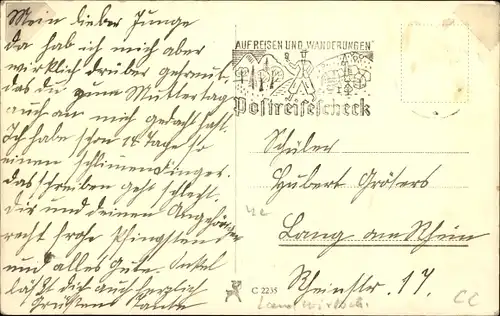 Mein lieber Junge
da hab ich mich aber
wirklich drüber gefreut
das du zum Muttertag
auch an mich gedacht hast.
Ich habe schon 14 Tage so
einen schlimmen Finger.
das schreiben geht schlecht.
Dir und deinen Angehörigen
recht frohe Pfingsten
und alles Gute.
läßt dich auch herzlich
Grüssen Tante
AUF REISEN UND WANDERUNGEN
Postreisescheck
Schüler
Hubert Grösers
Lang am Rhein
Rheinstr. 17.
C 2235
CC